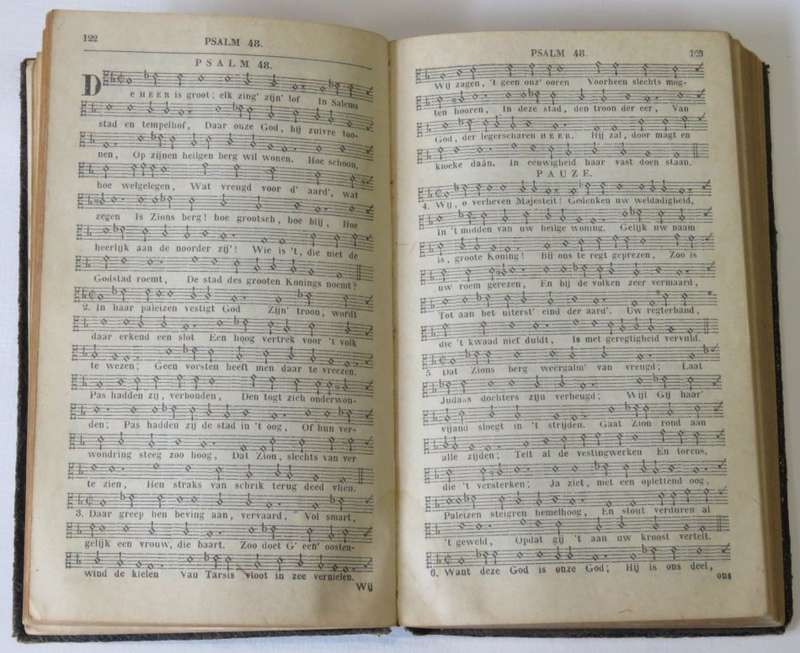 122
PSALM 48.
PSALM 48.
De HEER is groot; elk zing' zijn' lof In Salems
stad en tempelhof, Daar onze God, bij zuivre too-
nen, Op zijnen heilgen berg wil wonen. Hoe schoon,
hoe welgelegen, Wat vreugd voor d' aard', wat
zegen Is Zions berg! hoe grootsch, hoe blij, Hoe
heerlijk aan de noorder zij'! Wie is 't, die niet de
Godstad roemt, De stad des grooten Konings noemt?
2. In haar paleizen vestigt God Zijn' troon, wordt
daar erkend een slot Een hoog vertrek voor 't volk
te wezen; Geen vorsten heeft men daar te vreezen.
Pas hadden zij, verbonden, Den togt zich onderwon-
den; Pas hadden zij de stad in 't oog, Of hun ver-
wondring steeg zoo hoog, Dat Zion, slechts van ver
te zien, Hen straks van schrik terug deed vlien.
3. Daar greep hen beving aan, vervaard, Vol smart,
gelijk een vrouw, die baart. Zoo doet G' een' oosten-
wind de kielen Van Tarsis vloot in zee vernielen.
Wij
PSALM 48.
123
Wij zagen, 't geen onz' ooren Voorheen slechts mog-
ten hooren, In deze stad, den troon der eer, Van
God, der legerscharen HEER. Hij zal, door magt en
kloeke daân, In eeuwigheid haar vast doen staan.
PAUZE.
4. Wij, o verheven Majesteit! Gedenken uw weldadigheid,
In 't midden van uw heilge woning. Gelijk uw naam
is, groote Koning! Bij ons te regt geprezen, Zoo is
uw roem gerezen, En bij de volken zeer vermaard,
Tot aan het uiterst' eind der aard'. Uw regterhand,
die 't kwaad niet duldt, Is met geregtigheid vervuld.
5. Dat Zions berg weergalm' van vreugd; Laat
Judaas dochters zijn verheugd; Wijl Gij haar'
vijand sloegt in 't strijden. Gaat Zion rond aan
alle zijden; Telt al de vestingwerken En torens,
die 't versterken; Ja ziet, met een oplettend oog,
Paleizen steigren hemelhoog, En stout verduren al
't geweld, Opdat gij 't aan uw kroost vertelt.
6. Want deze God is onze God; Hij is ons deel,
ons